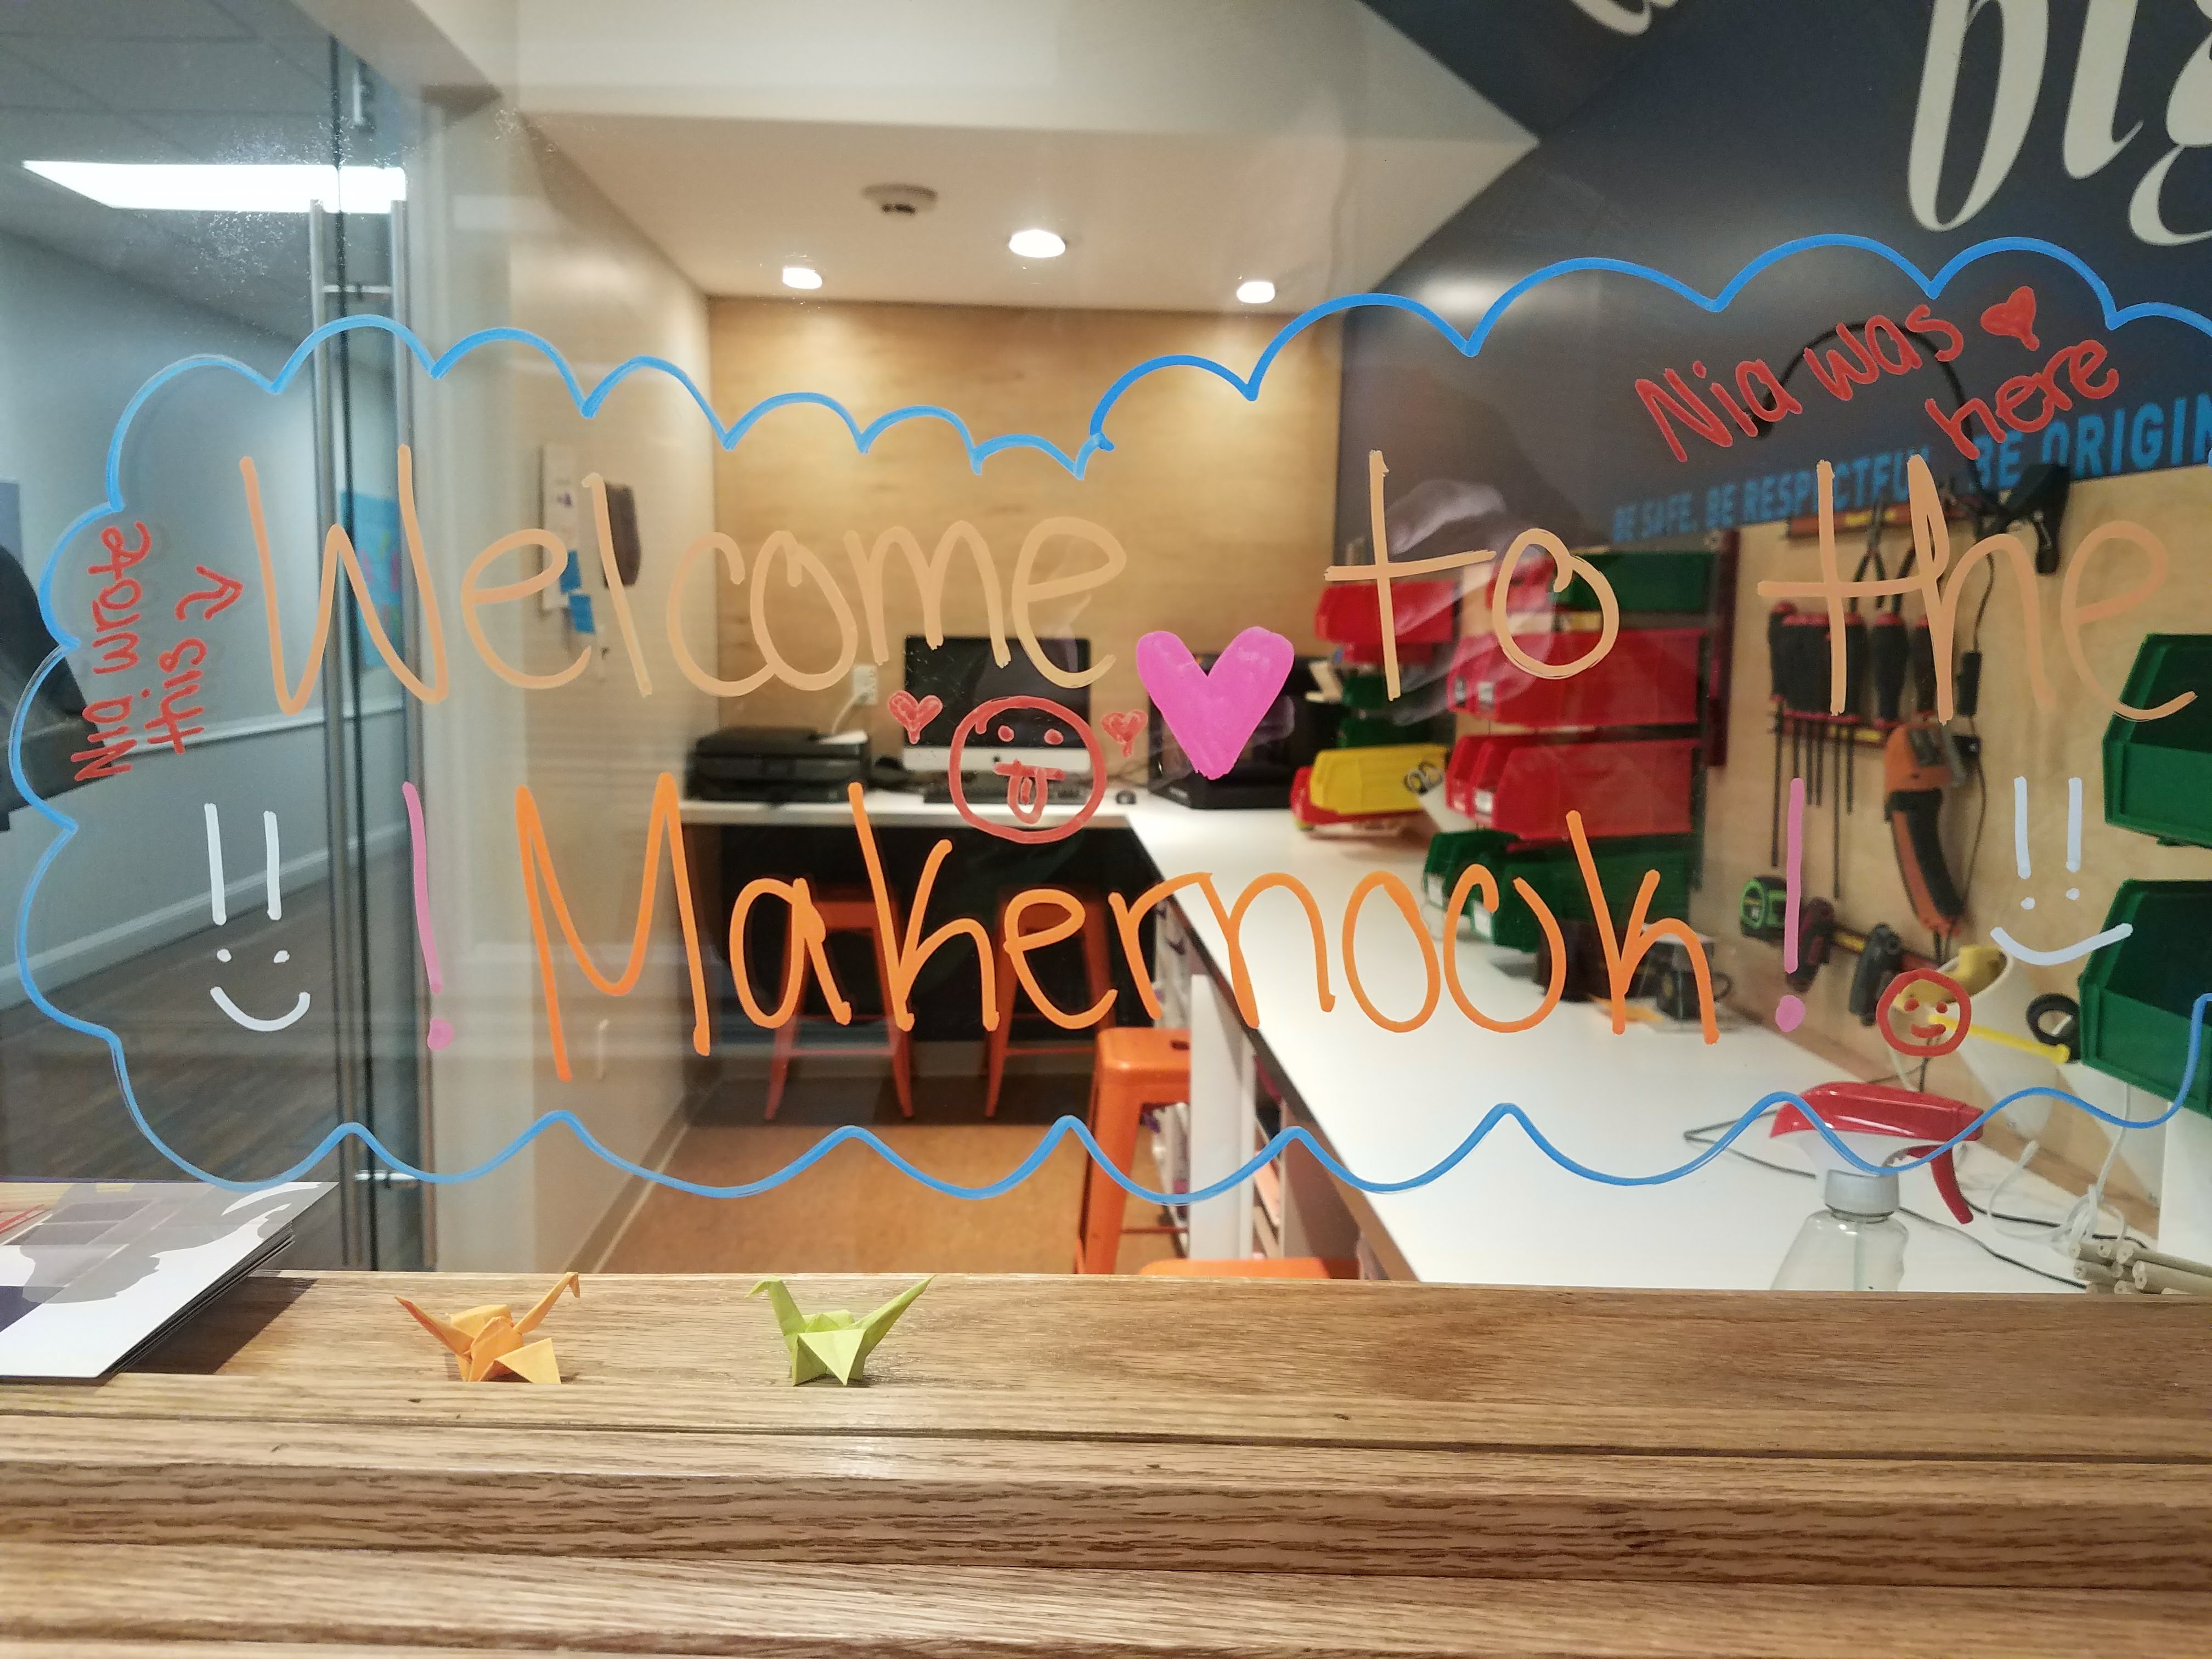 Nia was
here
BE SAFE. BE RESPECTFUL. BE ORIGIN
Nia wrote
this
Welcome to the
! Makernook!